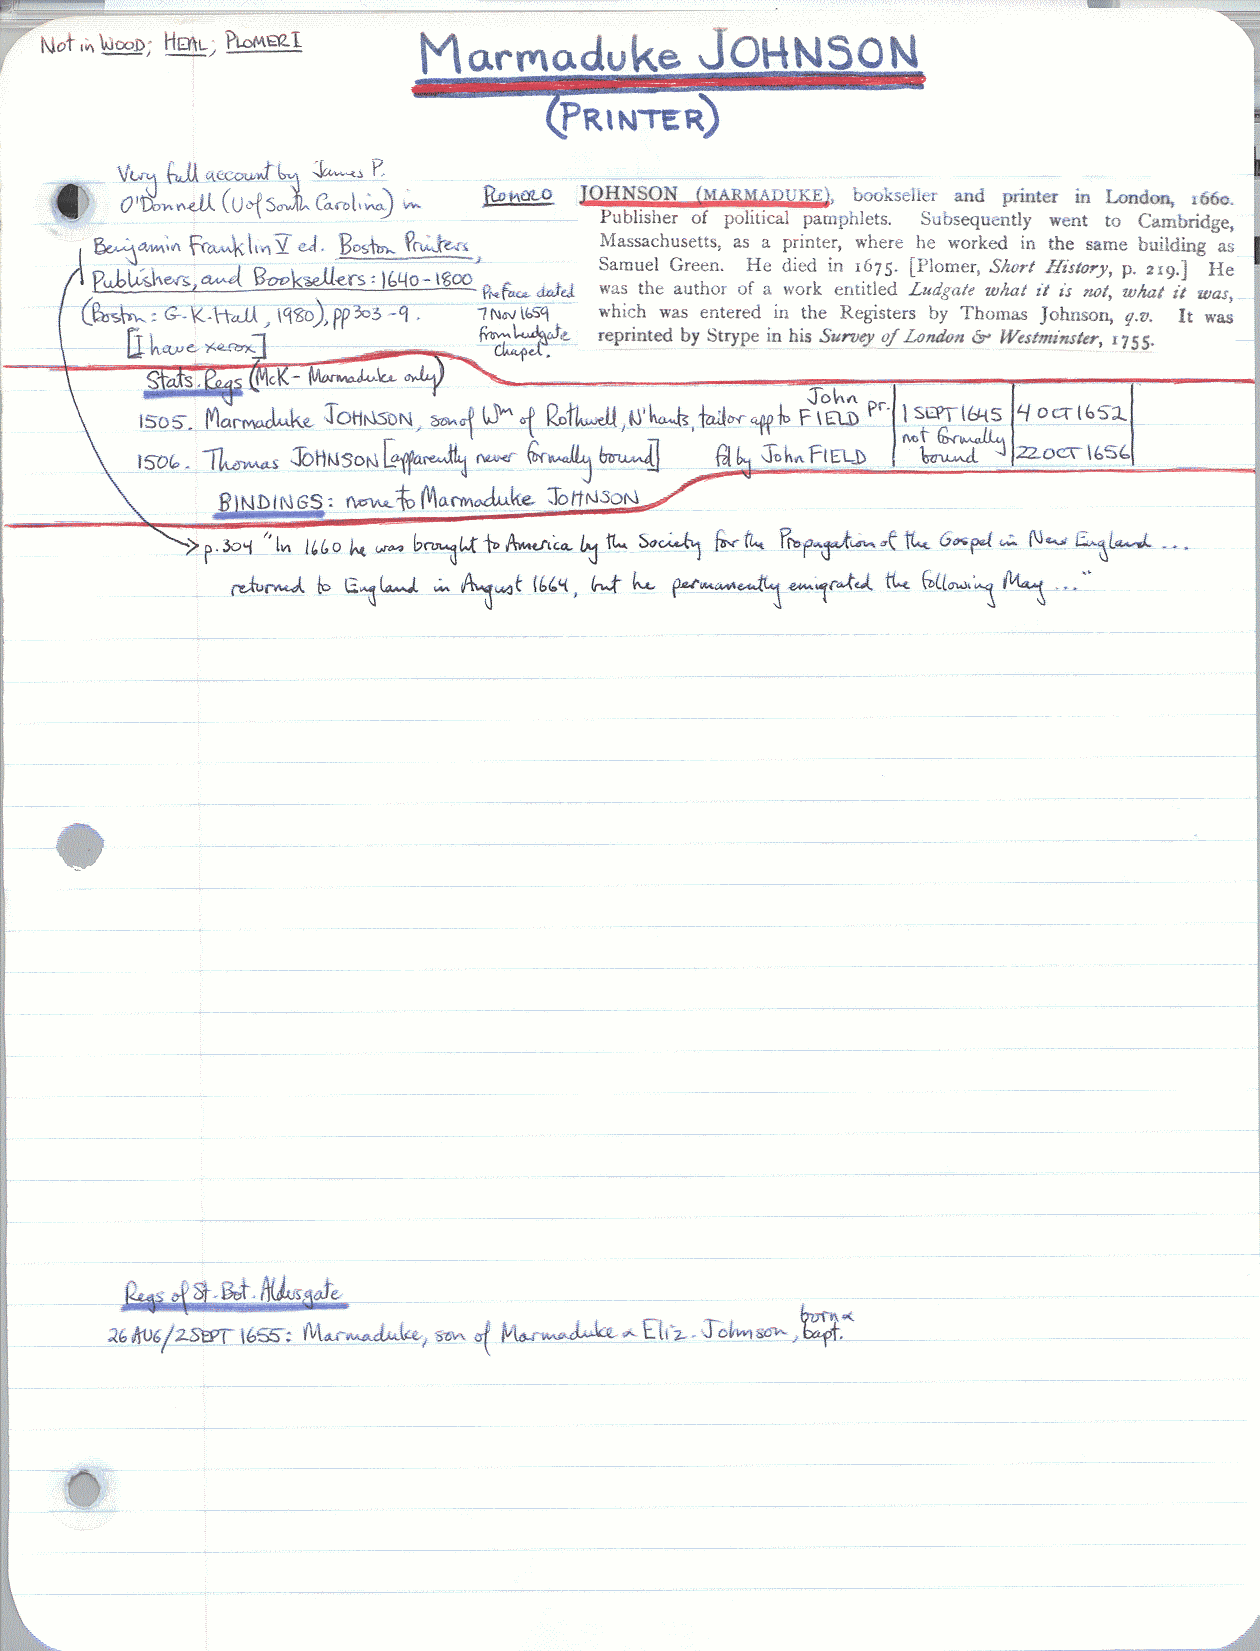 Not in WOOD; HEAL; PLOMER I
Marmaduke JOHNSON
(PRINTER)
Very full account by James P.
O'Donnell (U of South Carolina) in
Benjamin Franklin V ed. Boston Printers,
Publishers, and Booksellers: 1640-1800
(Boston: G.K. Hall, 1980), pp 303-9.
[I have xerox]
Preface dated
7 Nov 1659
from Ludgate
Chapel.
JOHNSON (MARMADUKE), bookseller and printer in London, 1660.
Publisher of political pamphlets. Subsequently went to Cambridge,
Massachusetts, as a printer, where he worked in the same building as
Samuel Green. He died in 1675. [Plomer, Short History, p. 219.] He
was the author of a work entitled Ludgate what it is not, what it was,
which was entered in the Registers by Thomas Johnson, q.v. It was
reprinted by Strype in his Survey of London & Westminster, 1755.
Stats. Regs (McK - Marmaduke only)
1505. Marmaduke JOHNSON, son of Wm of Rothwell, N'hants, tailor app to John FIELD pr. 1 SEPT 1645 4 OCT 1652
1506. Thomas JOHNSON [apparently never formally bound] fd by John FIELD not formally bound 22 OCT 1656
BINDINGS: none to Marmaduke JOHNSON
→ p.304 "In 1660 he was brought to America by the Society for the Propagation of the Gospel in New England ...
returned to England in August 1664, but he permanently emigrated the following May ..."
Regs of St. Bot. Aldersgate
26 AUG/2 SEPT 1655: Marmaduke, son of Marmaduke & Eliz. Johnson, born & bapt.